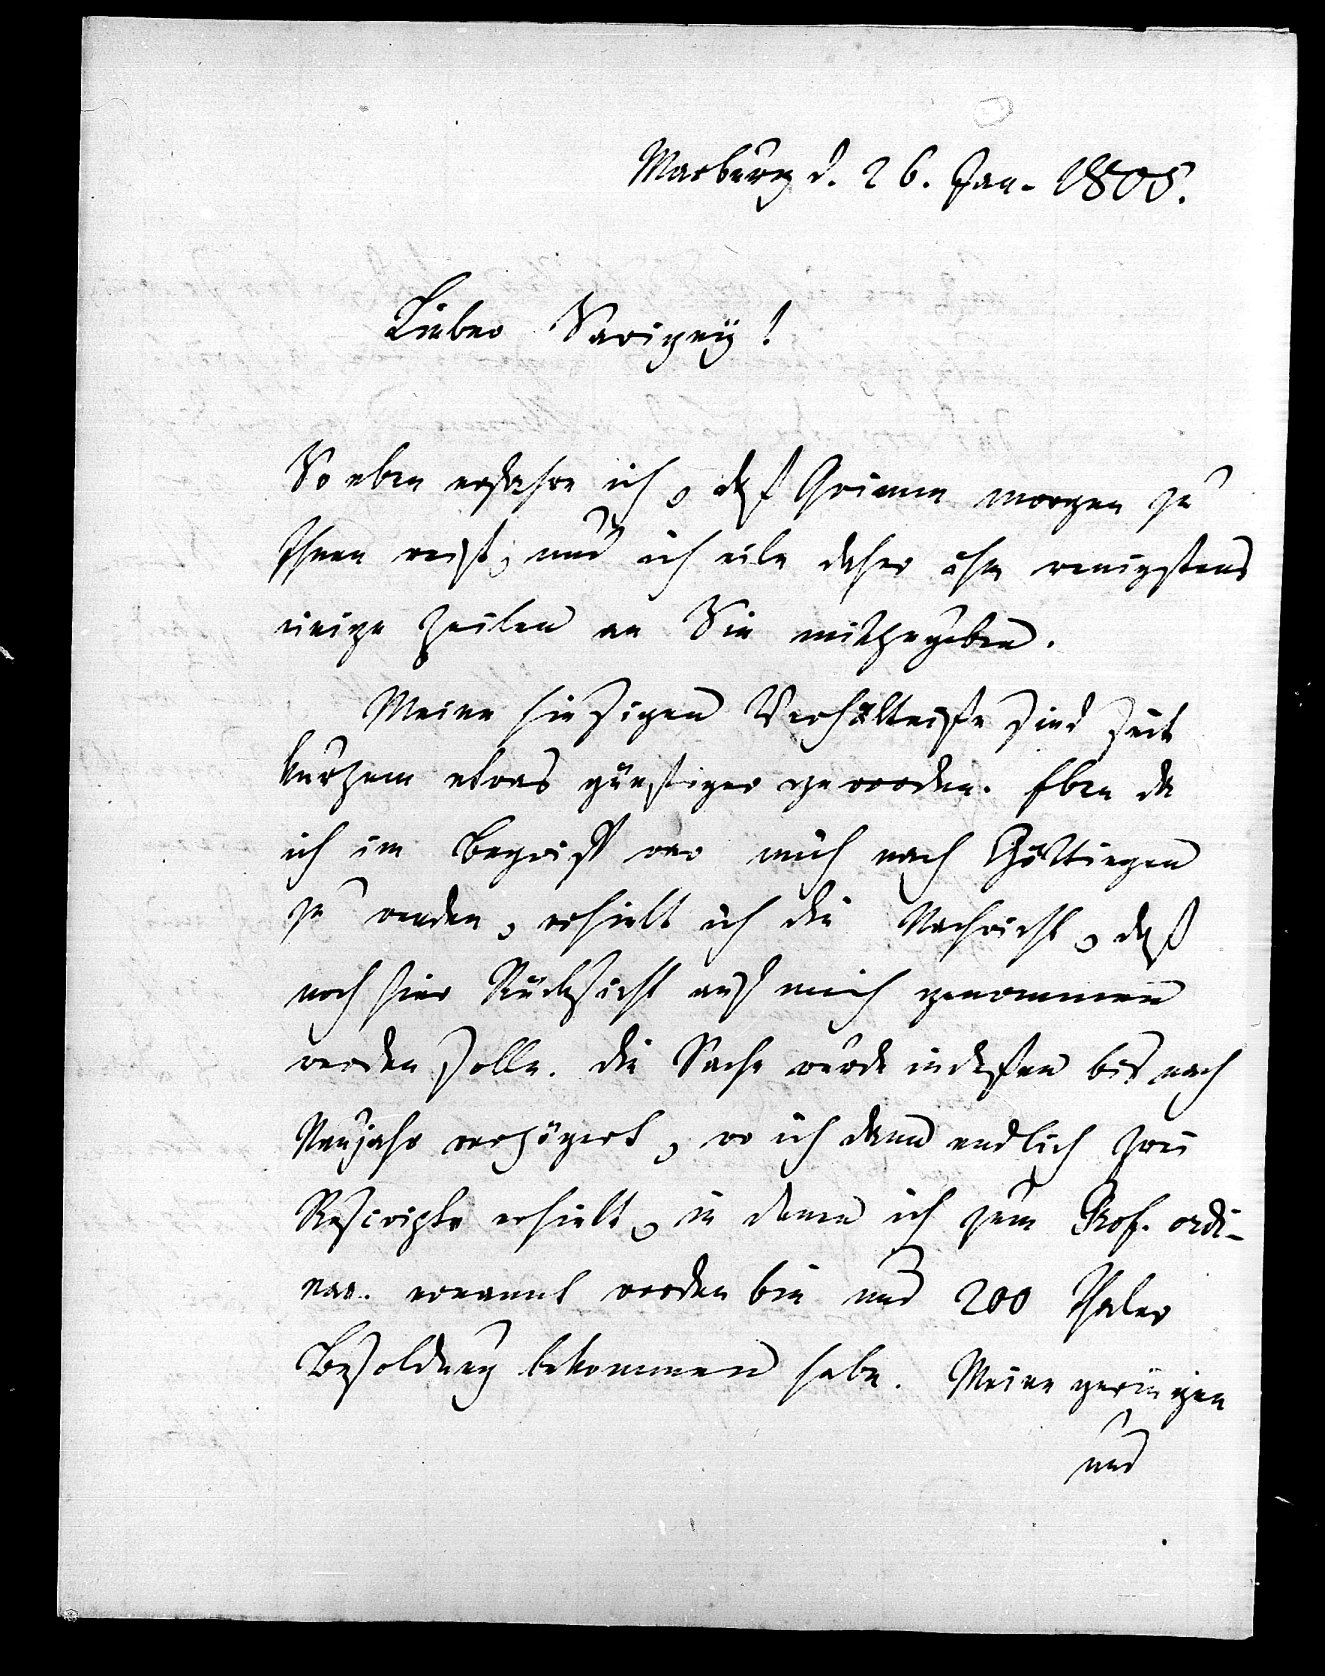 Marburg d. 26. Jan. 1805.
Lieber Savigny!
So eben erfahre ich, daß Grimm morgen zu
Ihnen reist, und ich eile daher ihm wenigstens
einige Zeilen an Sie mitzugeben.
Meine hiesigen Verhältniße sind seit
kurzem etwas günstiger geworden. Eben da
ich im Begriff war mich nach Göttingen
zu wenden, erhielt ich die Nachricht, daß
noch hier Rücksicht auf mich genommen
werden solle. Die Sache wurde indeßen bis nach
Neujahr verzögert, wo ich denn endlich zwei
Rescripte erhielt, in denen ich zum Prof. ordi-
nar. ernannt worden bin und 200 Thaler
Besoldung bekommen habe. Meine geringen
und